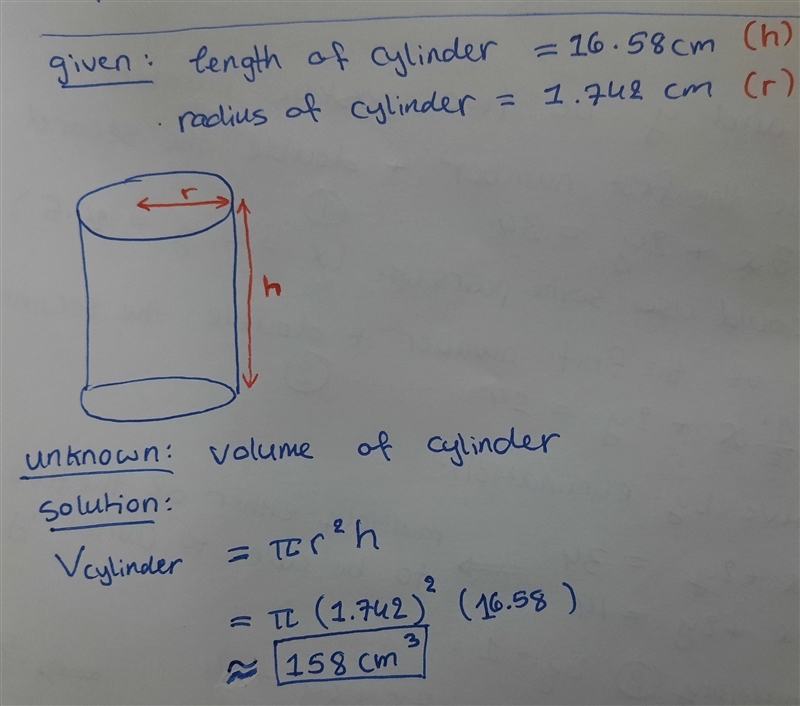 given: length of cylinder = 16.58 cm (h)
radius of cylinder = 1.742 cm (r)
r
h
unknown: volume of cylinder
solution:
Vcylinder = πr²h
= π (1.742)² (16.58)
≈ 158 cm³